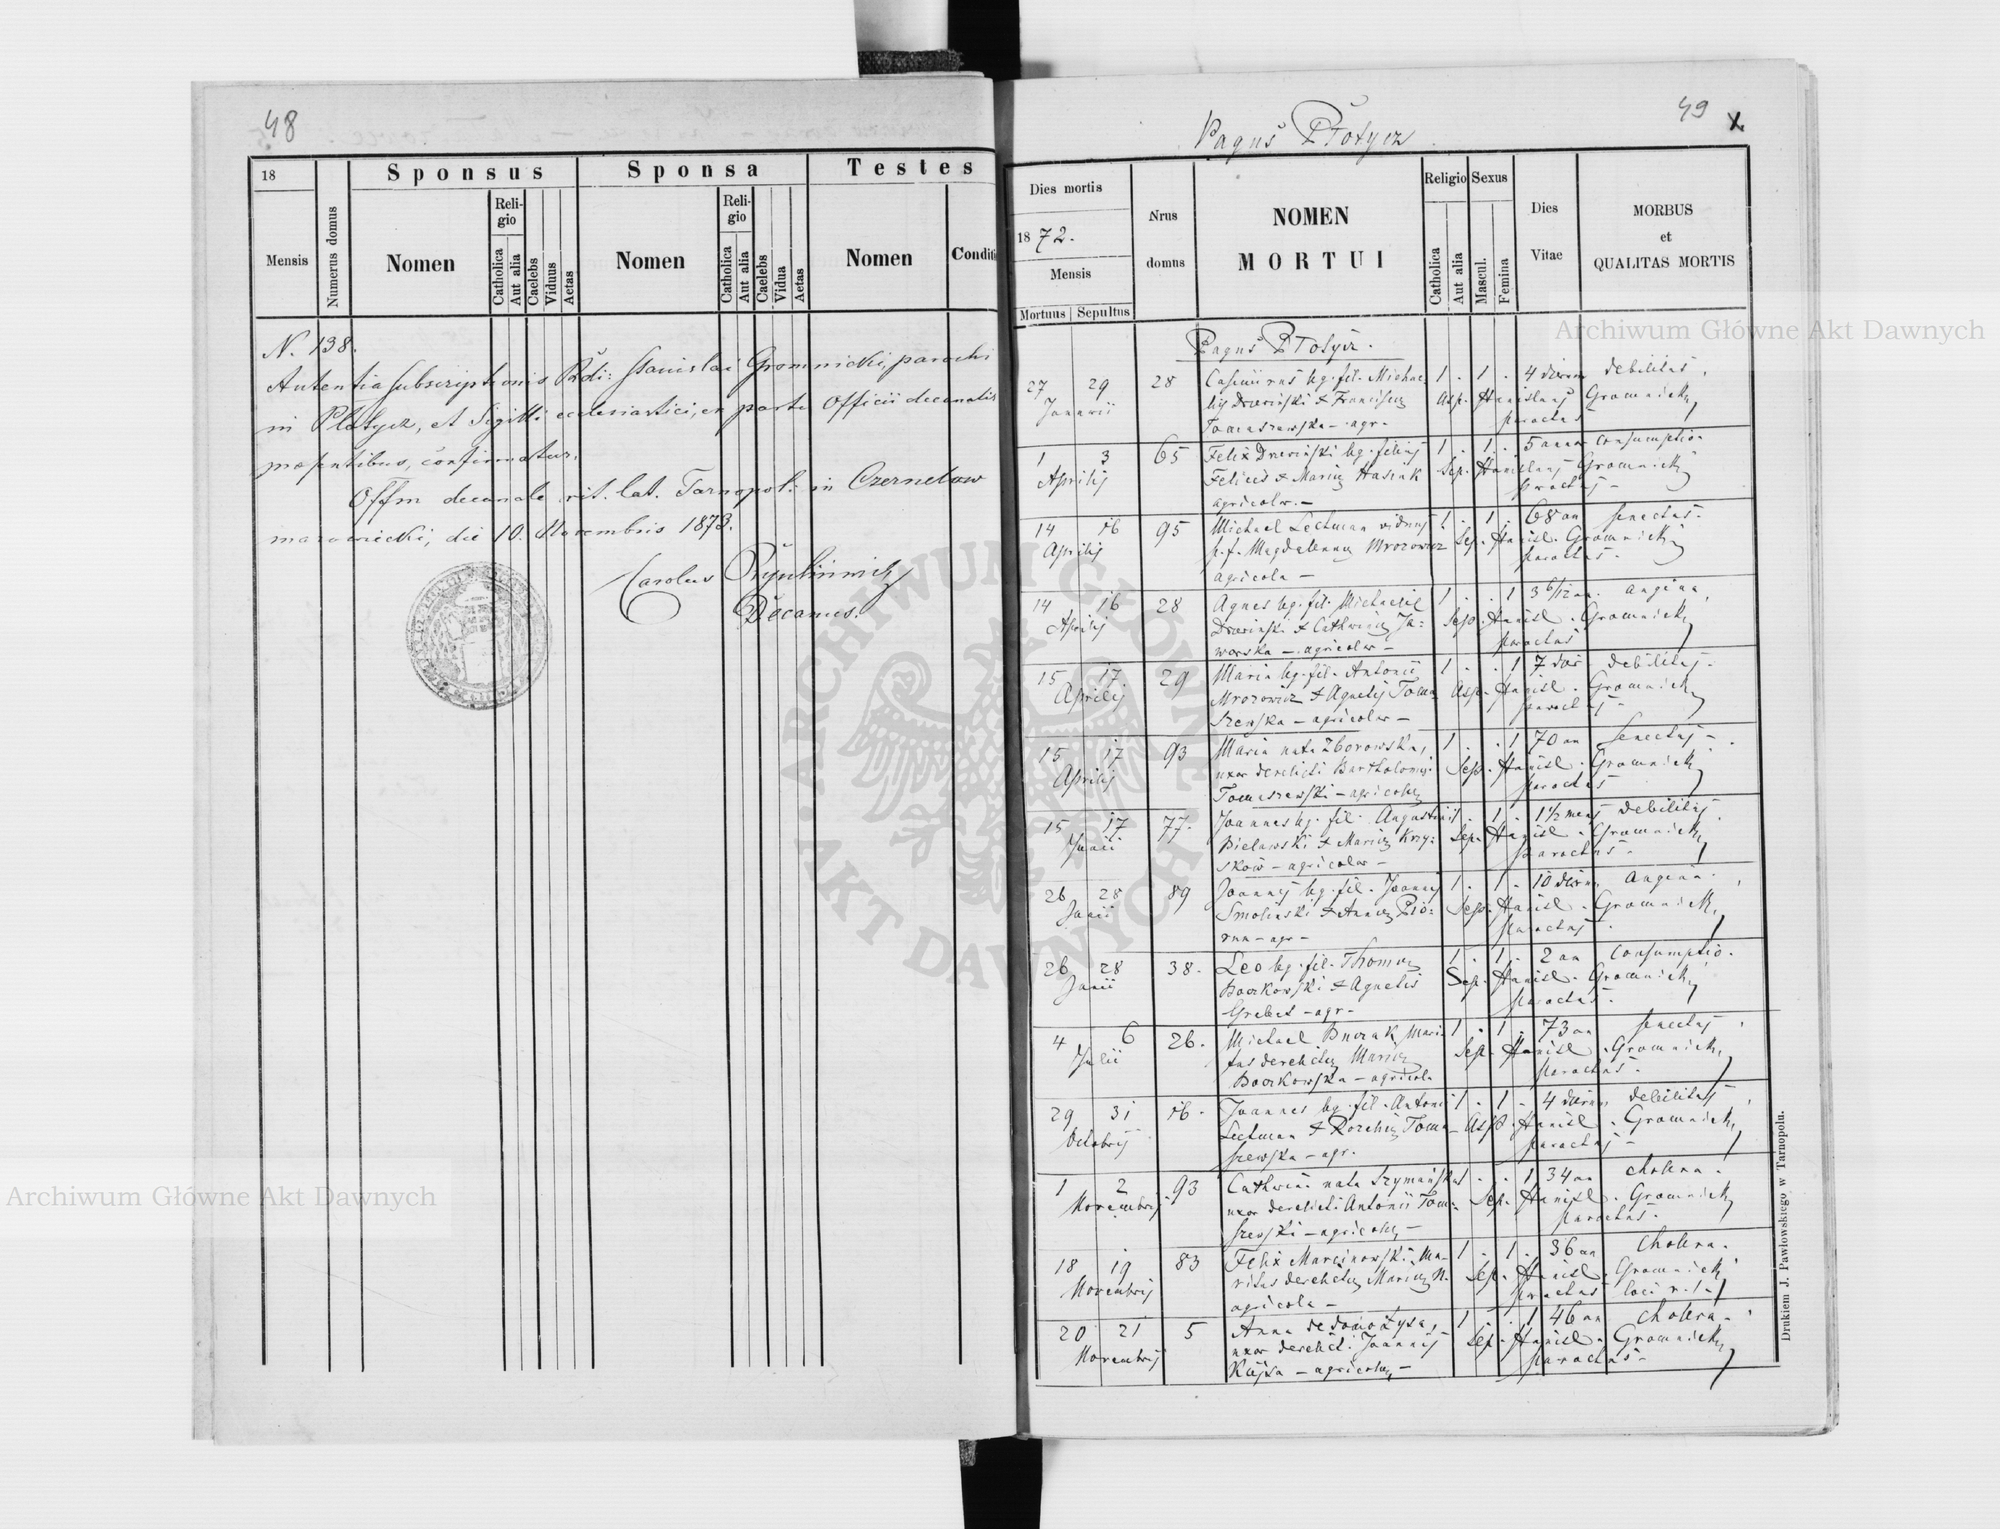 48
18
Mensis
Numerus domus
Sponsus
Nomen
Religio
Catholica
Aut alia
Caelebs
Viduus
Aetas
Sponsa
Nomen
Religio
Catholica
Aut alia
Caelebs
Vidua
Aetas
Testes
Nomen
Conditi
N. 138.
Autentia subscriptionis Rdi: Stanislai Gromnicki, parochi
in Płotycz, et Sigilli ecclesiastici, ex parte Officii decanalis
praesentibus, confirmatur.
Offm decanale rit. lat. Tarnopol: in Czernelow
mazowiecki, die 10. Novembris 1873.
Carolus
Decanus.
49
Pagus Płotycz
Dies mortis
1872.
Mensis
Mortuus | Sepultus
Nrus
domus
NOMEN
MORTUI
Religio
Catholica
Aut alia
Sexus
Mascul.
Femina
Dies
Vitae
MORBUS
et
QUALITAS MORTIS
Pagus Płotycz.
27 29 28 Casimirus lg. fil. Michae- 1 . 1 . 4 dierum debilitas.
Januarii lis Drewiński & Franciscae Asp. Stanislaus Gromnicki
Tomaszewska - agr. parochus
1 3 65 Felix Drewiński lg. filius 1 . 1 . 5 annor consumptio
Aprilis Felicis & Mariae Hasiak Sep. Stanislaus Gromnicki
agricolar. - parochus -
14 16 95 Michael Lectman viduus 1 . 1 . 68 an senectus.
Aprilis p. f. Magdalenna Mrozowicz Sep. Stanisl. Gromnicki
agricola - parochus.
14 16 28 Agnes lg. fil. Michaelis 1 . . 1 3 6/12 an. angina,
Aprilis Drewiński & Catharinae Ja- Sep. Stanisl. Gromnicki
worska - agricolar - parochus
15 17 29 Maria lg. fil. Antonii 1 . . 1 7 dier debilitas.
Aprilis Mrozowicz & Agnetis Toma Asp. Stanisl. Gromnicki
szewska - agricolar - parochus -
15 17 93 Maria nata Zborowska, 1 . . 1 70 an senectus -
Aprilis uxor derelicti Bartholomei Sep. Stanisl. Gromnicki
Tomaszewski - agricolae parochus
15 17 77. Joannes lg. fil. Augustini 1 . 1 . 1 1/2 mens debilitas
Junii Bielawski & Mariae Krzy- Sep. Stanisl. Gromnicki
sków - agricolar - parochus -
26 28 89 Joannes lg. fil. Joannis 1 . 1 . 10 dierum angina.
Junii Smoliński & Annae Pio- Sep. Stanisl. Gromnicki
run - agr - parochus
26 28 38. Leo lg. fil. Thomae 1 . 1 . 2 an consumptio.
Junii Boczkowski & Agnetis Sep. Stanisl. Gromnicki
Grabas - agr - parochus.
4 6 26. Michael Buczak mari- 1 . 1 . 73 an senectus
Julii tus derelictae Mariae Sep. Stanisl. Gromnicki
Boczkowska - agricola parochus.
29 31 16. Joannes lg. fil. Antonii 1 . 1 . 4 dierum debilitas
Octobris Lectman & Rozaliae Toma- Asp. Stanisl. Gromnicki
szewska - agr. parochus -
1 2 93 Catharina nata Szymańska 1 . . 1 34 an cholera.
Novembris uxor derelicti Antonii Toma- Sep. Stanisl. Gromnicki
szewski - agricolae - parochus.
18 19 83 Felix Marcinowski, ma- 1 . 1 . 36 an cholera.
Novembris ritus derelictae Mariae N. Sep. Stanisl. Gromnicki
agricola - parochus loci r. l.
20 21 5 Anna de domo Łysa, 1 . . 1 46 an cholera.
Novembris uxor derelict. Joannis Sep. Stanisl. Gromnicki
Kujsa - agricolae - parochus -
Drukiem J. Pawłowskiego w Tarnopolu.
Archiwum Główne Akt Dawnych
Archiwum Główne Akt Dawnych
ARCHIWUM GŁÓWNE AKT DAWNYCH